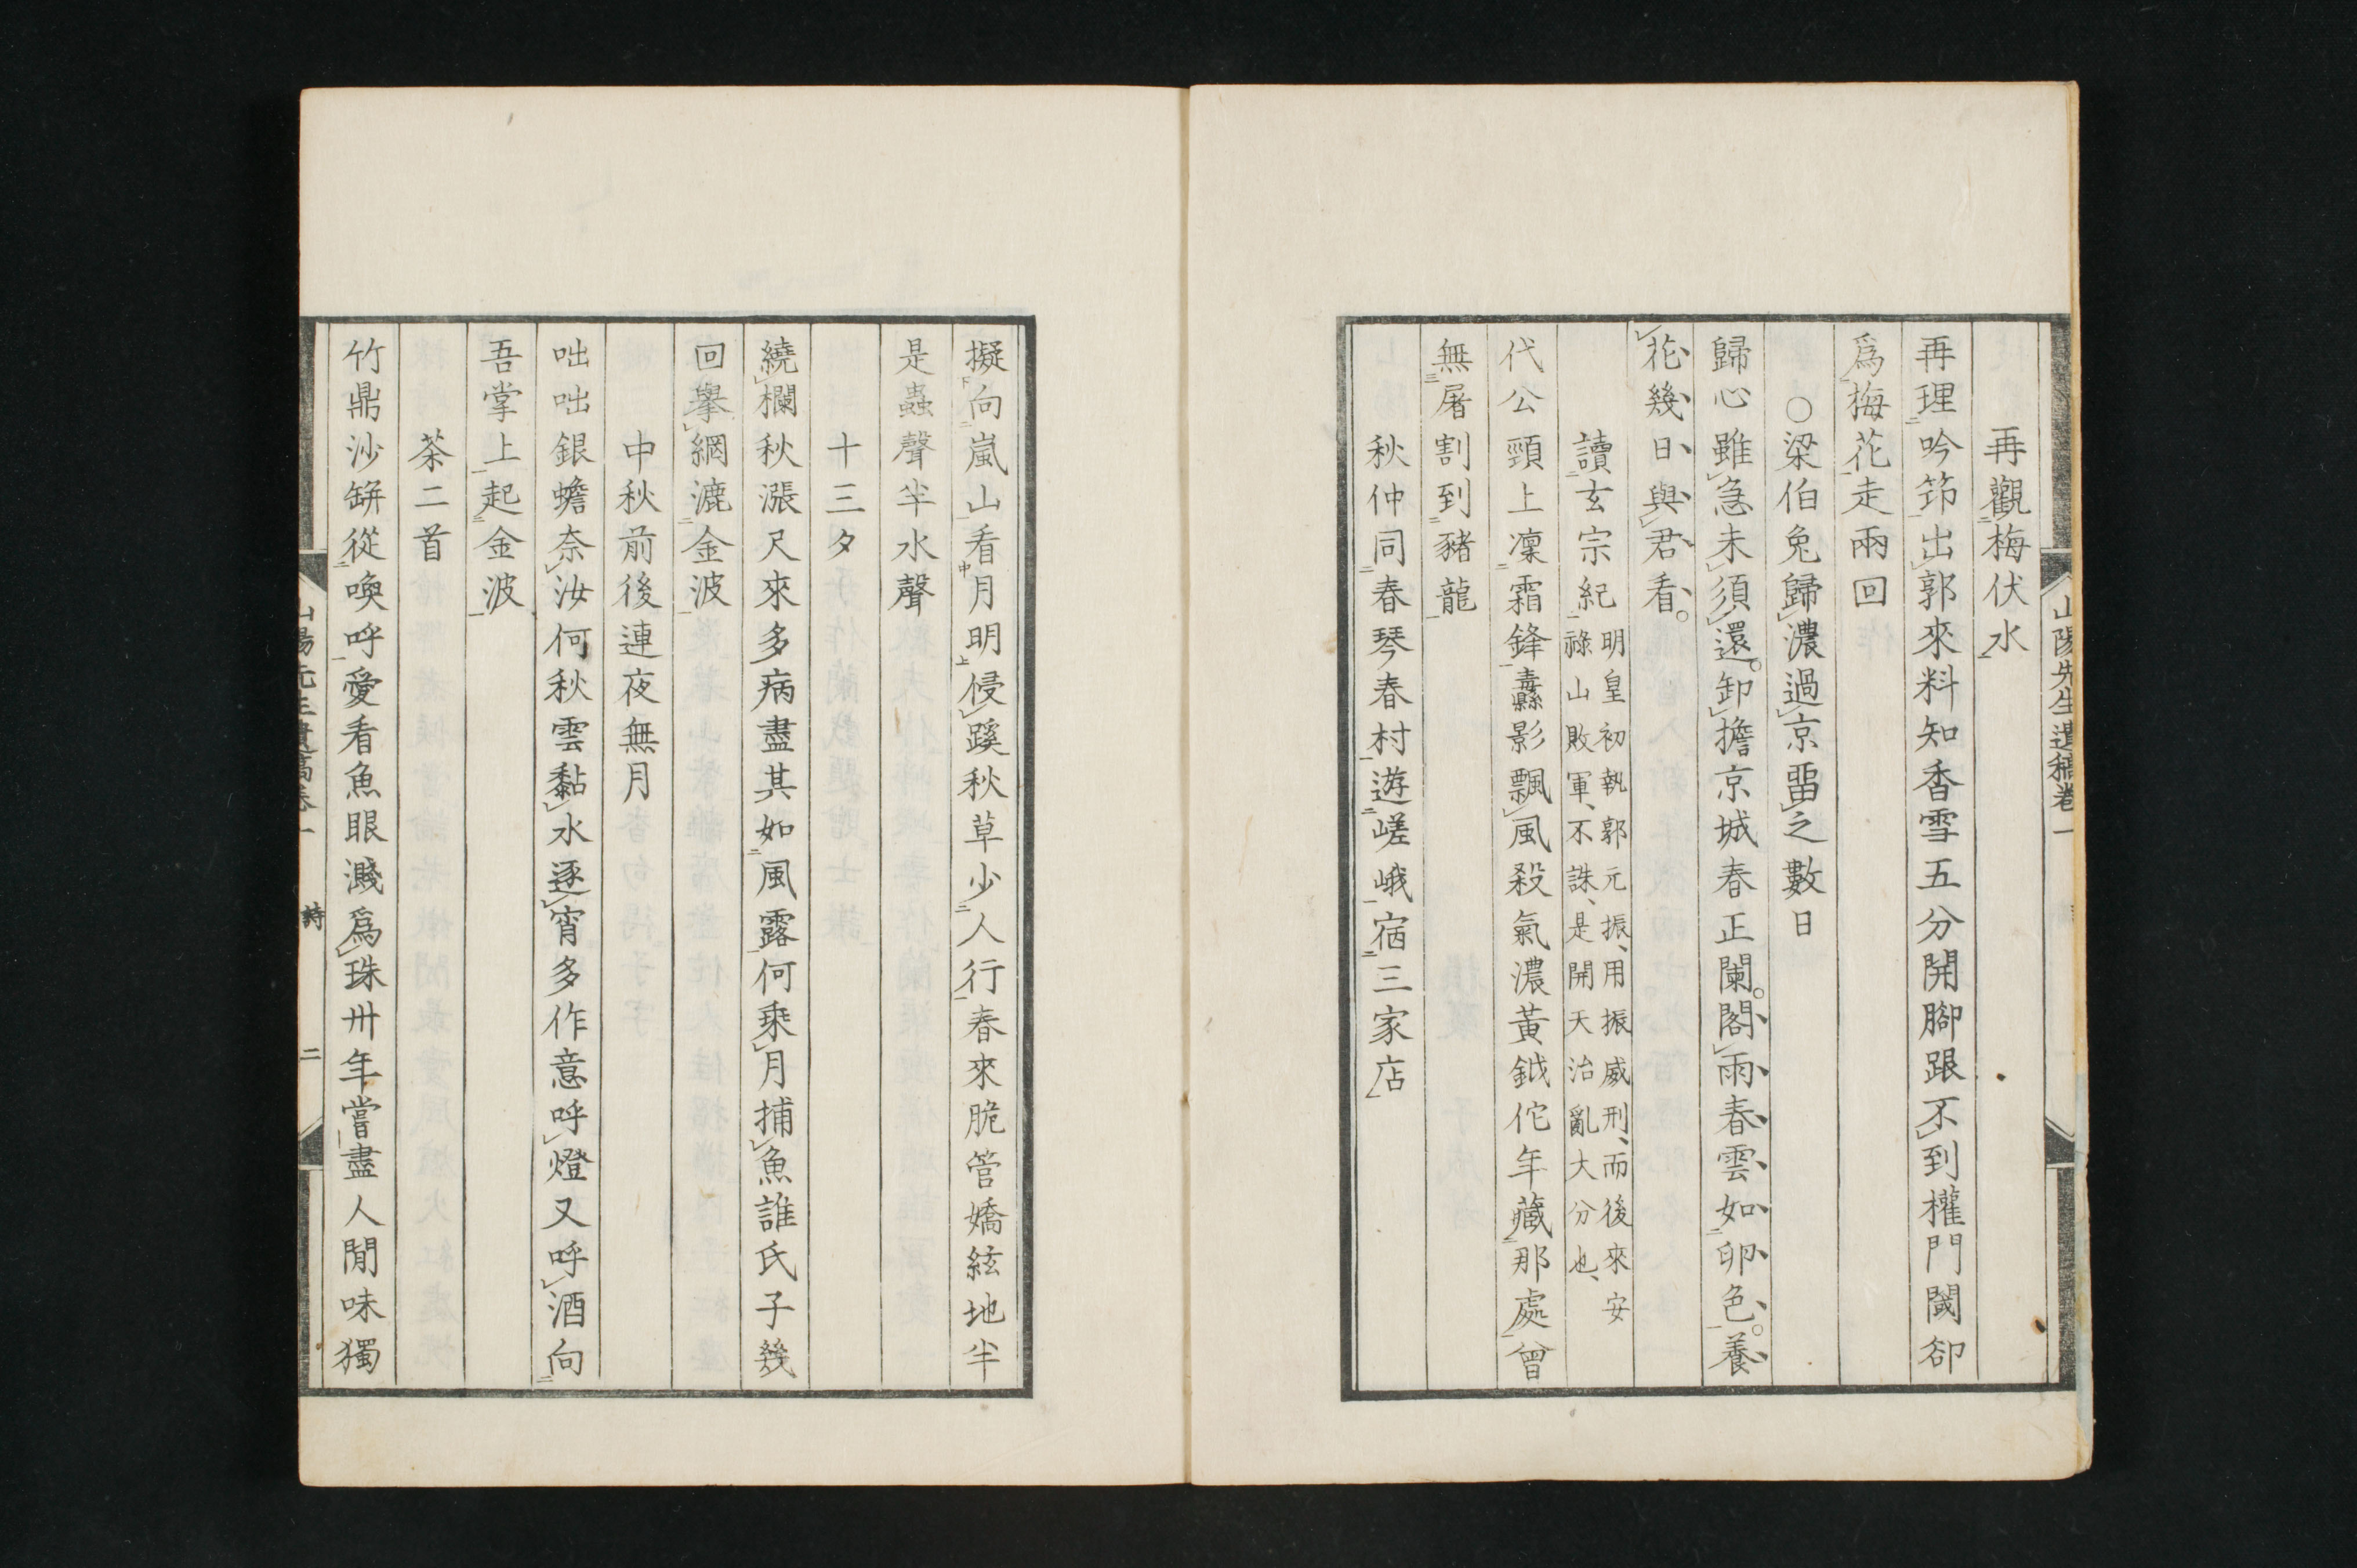 山陽先生遺稿卷一
再觀梅伏水
再理吟笻出郭來料知香雪五分開腳跟不到權門閾卻
爲梅花走兩回
○梁伯兔歸濃過京畱之數日
歸心雖急未須還卸擔京城春正闌閣雨春雲如卵色養
花幾日與君看
讀玄宗紀
明皇初執郭元振、用振威刑、而後來安
祿山敗軍、不誅、是開天治亂大分也、
代公頸上凜霜鋒纛影飄風殺氣濃黃鉞佗年藏那處曾
無屠割到豬龍
秋仲同春琴春村遊嵯峨宿三家店
擬向嵐山看月明侵蹊秋草少人行春來脆管嬌絃地半
是蟲聲半水聲
十三夕
繞欄秋漲尺來多病盡其如風露何乘月捕魚誰氏子幾
回擧網漉金波
中秋前後連夜無月
咄咄銀蟾奈汝何秋雲黏水逐宵多作意呼燈又呼酒向
吾掌上起金波
茶二首
竹鼎沙缾從喚呼愛看魚眼濺爲珠卅年嘗盡人閒味獨
山陽先生遺稿卷一 詩 二